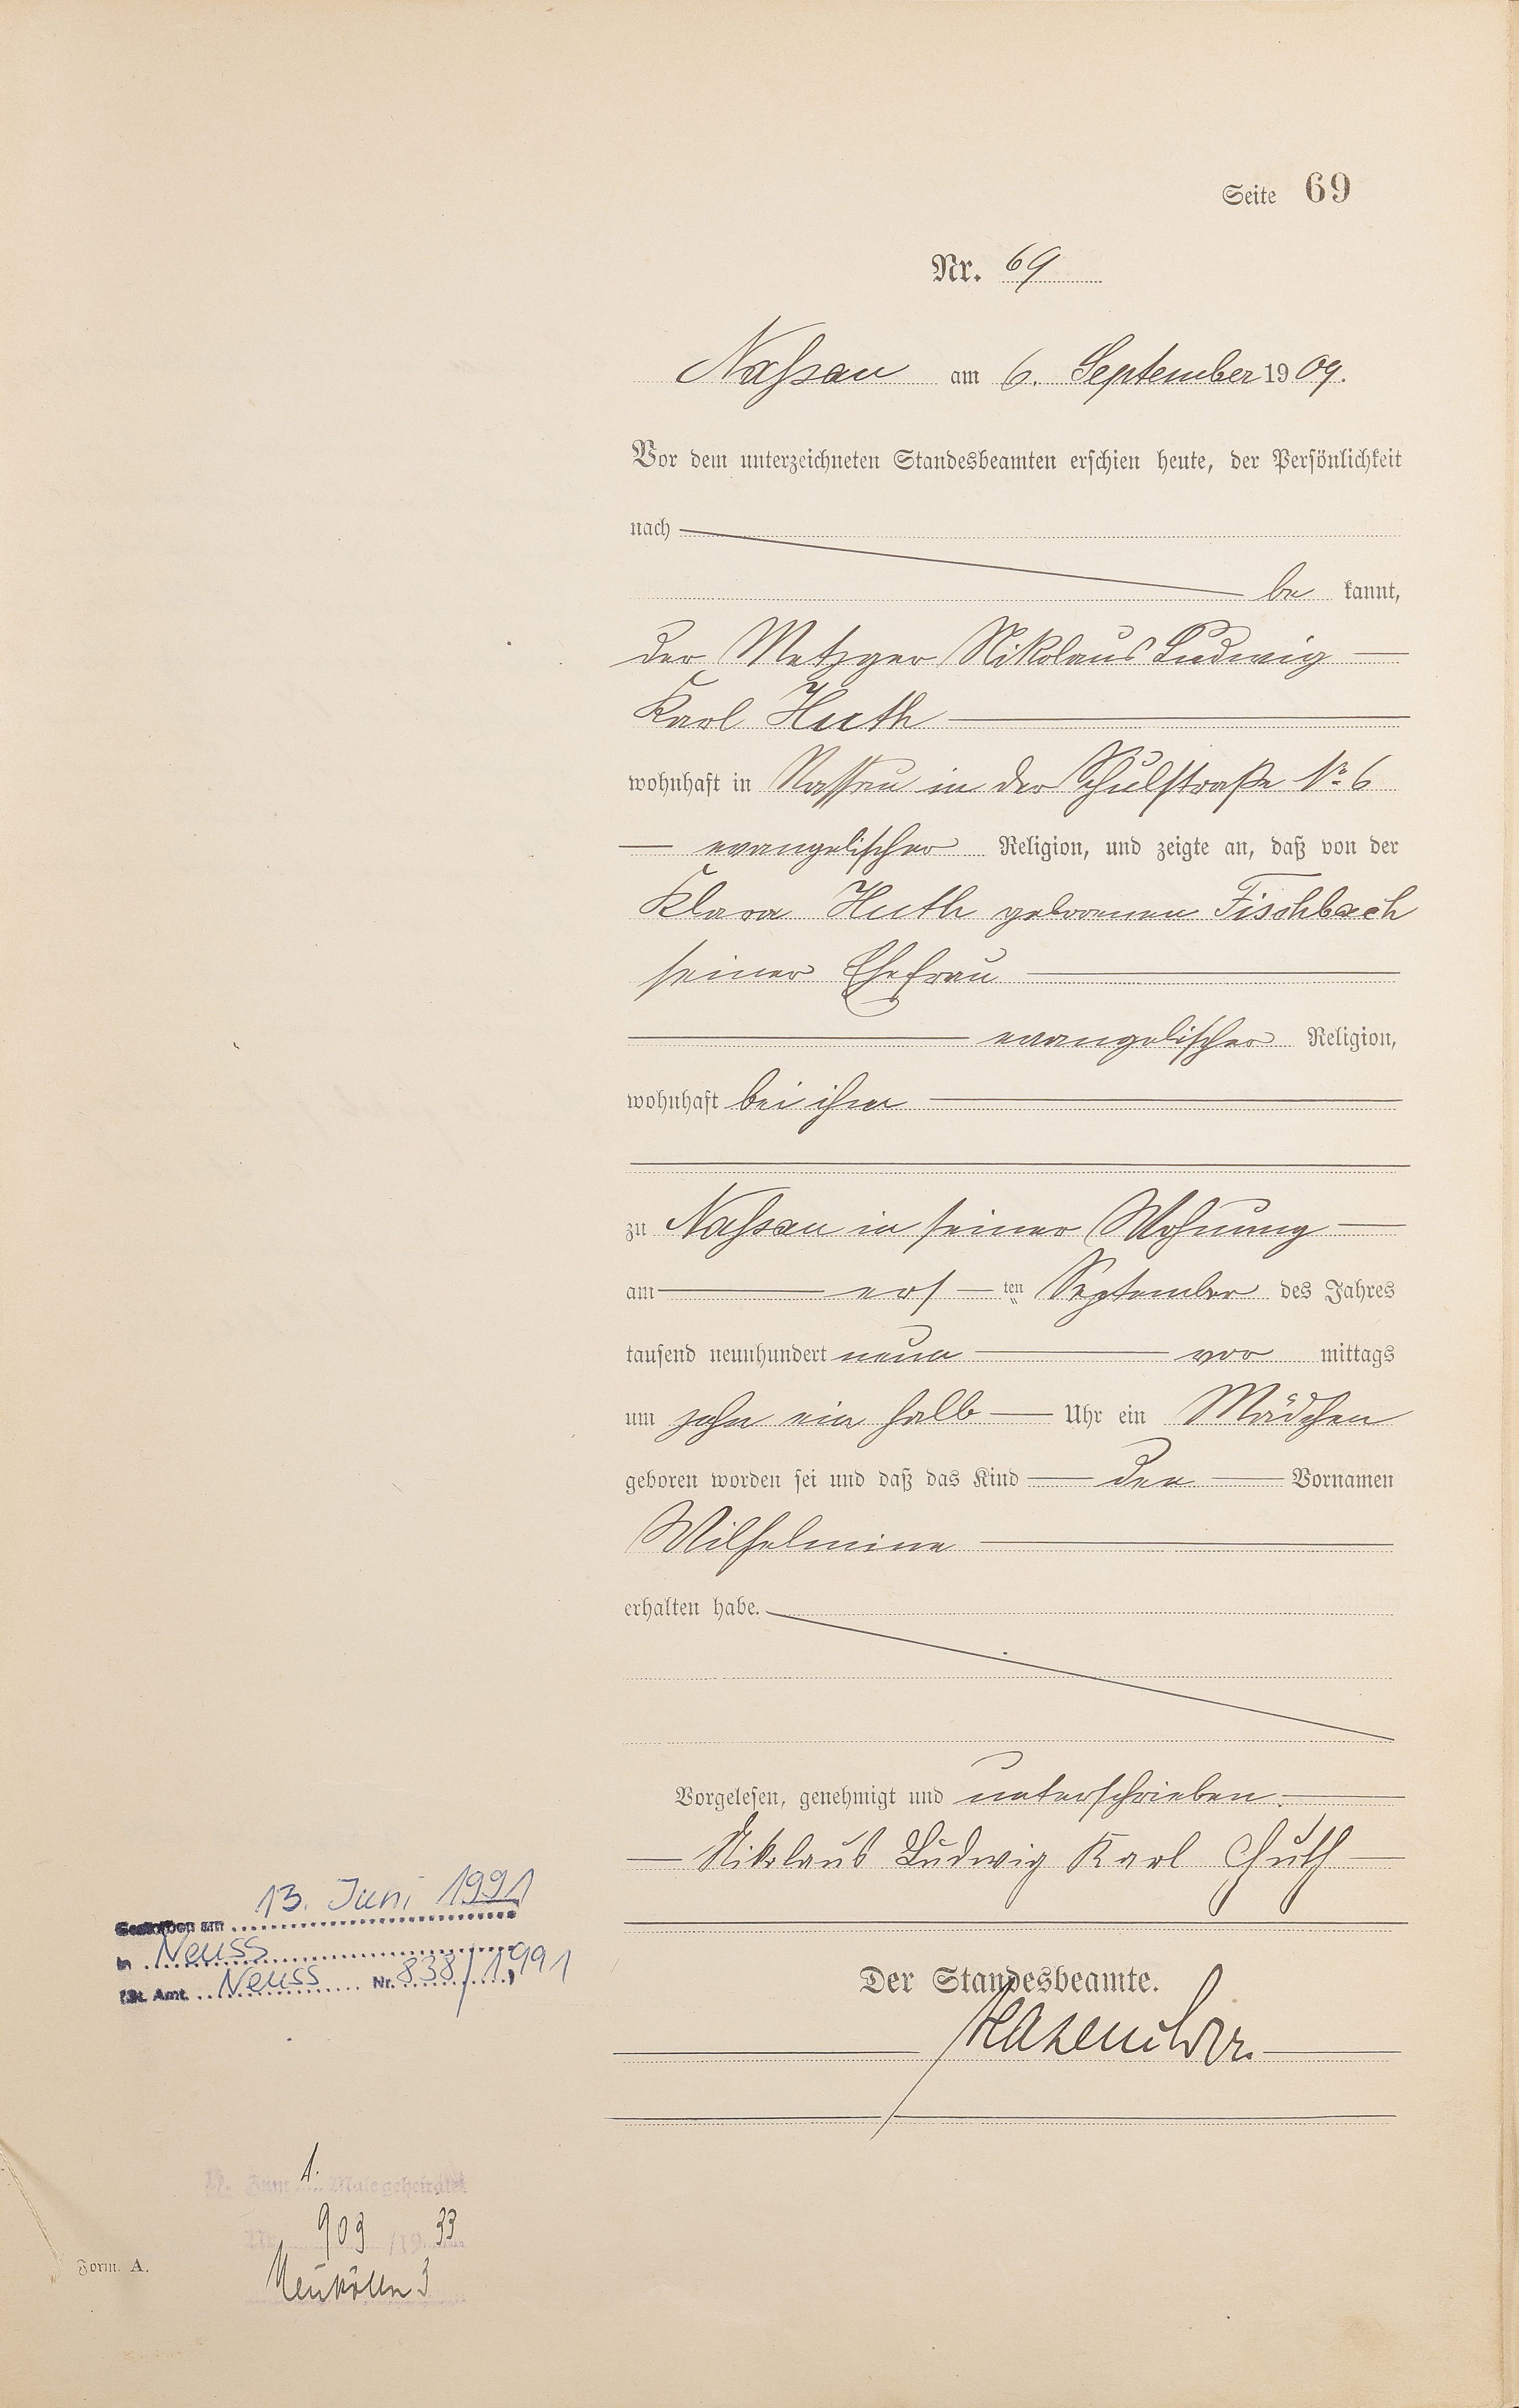 Seite 69
Nr. 69
Nassau am 6. September 1909.
Vor dem unterzeichneten Standesbeamten erschien heute, der Persönlichkeit
nach
be kannt,
der Metzger Nikolaus Ludwig
Karl Huth
wohnhaft in Nassau in der Schulstraße No 6
evangelischer Religion, und zeigte an, daß von der
Klara Huth geborenen Fischbach
seiner Ehefrau
evangelischer Religion,
wohnhaft bei ihm
zu Nassau in seiner Wohnung
am ers ten September des Jahres
tausend neunhundert neun vor mittags
um zehn ein halb Uhr ein Mädchen
geboren worden sei und daß das Kind den Vornamen
Wilhelmine
erhalten habe.
Vorgelesen, genehmigt und unterschrieben.
Nikolaus Ludwig Karl Huth
Der Standesbeamte.
Gestorben am 13. Juni 1991
in Neuss
(St. Amt. Neuss Nr. 838/1991)
H. Zum 1. Male geheiratet
Nr. 903 /1933
Neukölln 3
Form. A.